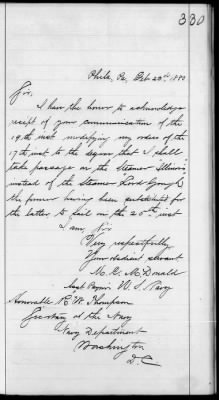 330
Phila, Pa, Feb 20th 1880
Sir,
I have the honor to acknowledge
receipt of your communication of the
19th inst modifying my orders of the
17th inst to the degree that I shall
take passage on the Steamer Illinois
instead of the Steamer Lord Gough
the former having been substituted for
the latter to sail on the 25th inst
I am Sir
Very respectfully
Your obedient servant
M. C. McDonald
Asst Paymr U. S. Navy
Honorable R W Thompson
Secretary of the Navy
Navy Department
Washington
D. C